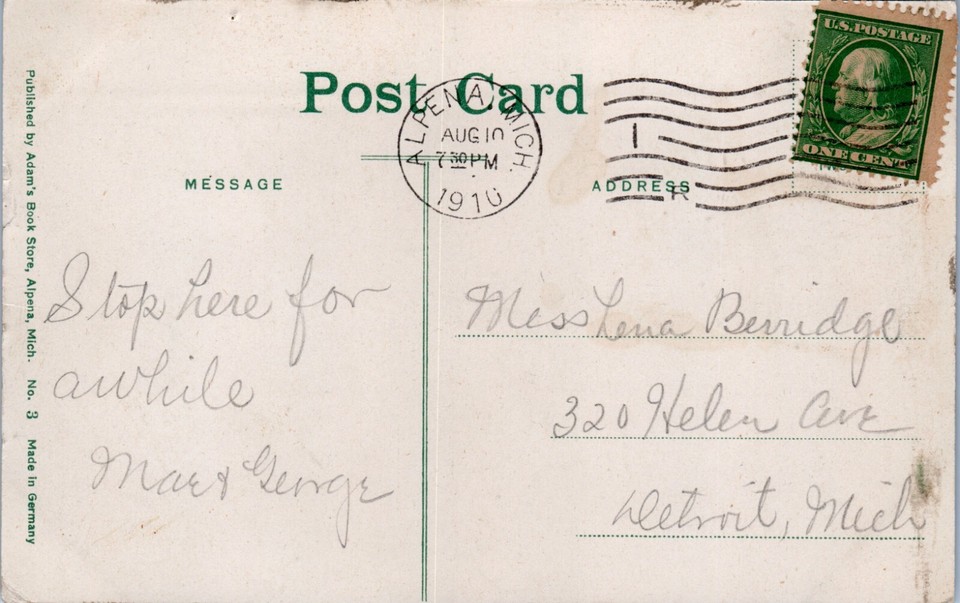 U.S. POSTAGE
ONE CENT
Post Card
ALPENA, MICH.
AUG 10
7 30 PM
1910
I
R
MESSAGE
ADDRESS
Stop here for
awhile
Mae & George
Miss Lena Berridge
320 Helen Ave
Detroit, Mich
Published by Adam's Book Store, Alpena, Mich. No. 3 Made in Germany